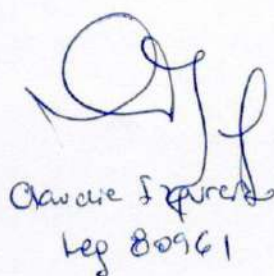 Claudia Izquierdo
Leg 80961